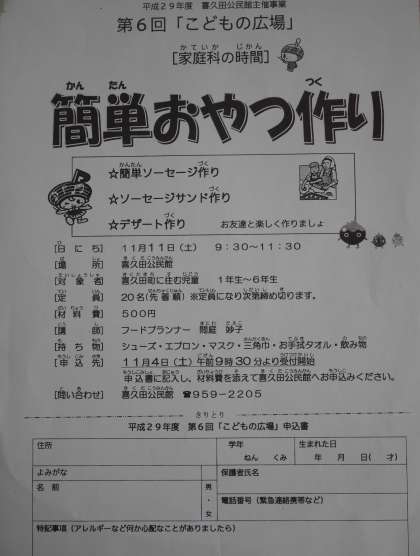 平成29年度 喜久田公民館主催事業
第6回「こどもの広場」
[家庭科の時間]
簡単おやつ作り
☆簡単ソーセージ作り
☆ソーセージサンド作り
☆デザート作り お友達と楽しく作りましょ
[日にち] 11月11日(土) 9:30~11:30
[場所] 喜久田公民館
[対象者] 喜久田町に住む児童 1年生~6年生
[定員] 20名(先着順)※定員になり次第締め切ります。
[材料費] 500円
[講師] フードプランナー 間庭 妙子
[持ち物] シューズ・エプロン・マスク・三角巾・お手拭タオル・飲み物
[申込先] 11月4日(土)午前9時30分より受付開始
申込書に記入し、材料費を添えて喜久田公民館へお申込みください。
[問い合わせ] 喜久田公民館 ☎959-2205
きりとり
平成29年度 第6回「こどもの広場」申込書
住所 学年 生まれた日
ねん くみ 年 月 日( 才)
よみがな 保護者氏名
名前 男・女
電話番号(緊急連絡帯など)
特記事項(アレルギーなど何か心配なことがありましたら)